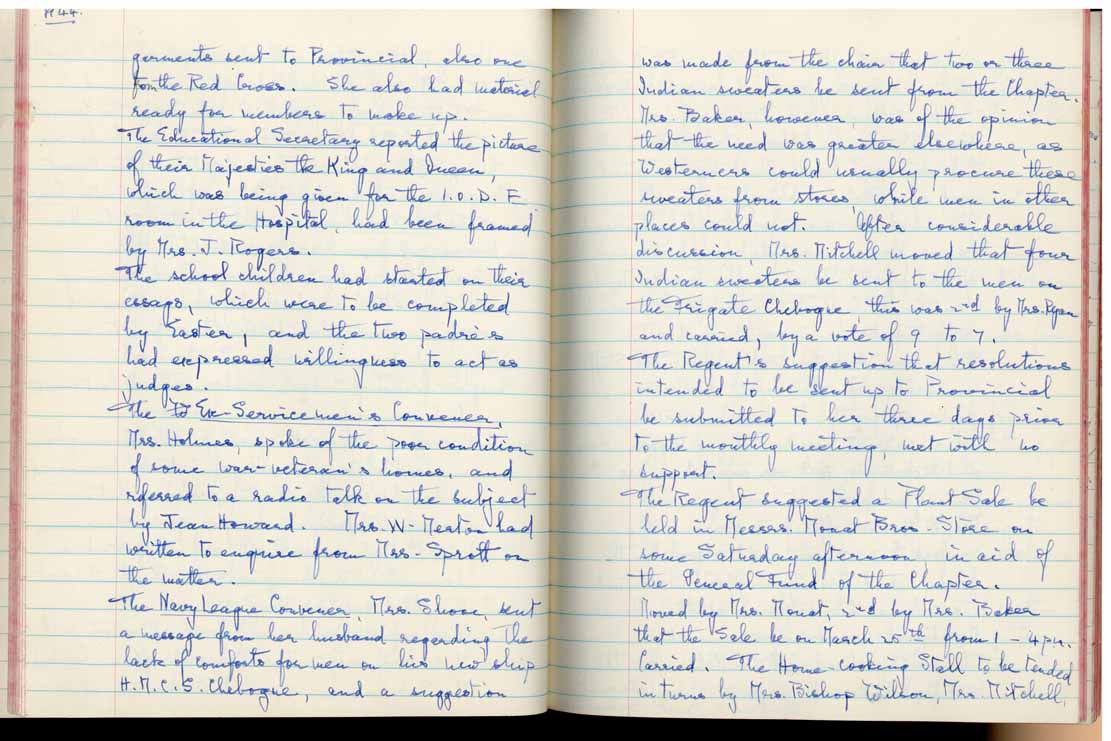 1944.
garments sent to Provincial, also one
from the Red Cross. She also had material
ready for members to make up.
The Educational Secretary reported the picture
of their Majesties the King and Queen,
which was being given for the I.O.D.E
room in the Hospital, had been framed
by Mrs. J. Rogers.
The school children had started on their
essays, which were to be completed
by Easter, and the two padres
had expressed willingness to act as
judges.
The Ex-Servicemen's Convener,
Mrs. Holmes, spoke of the poor condition
of some war-veteran's homes, and
referred to a radio talk on the subject
by Jean Howard. Mrs. W. Meaton had
written to enquire from Mrs. Sprott on
the matter.
The Navy League Convener, Mrs. Shove, sent
a message from her husband regarding the
lack of comforts for men on his new ship
H.M.C.S. Chebogue, and a suggestion
was made from the chair that two or three
Indian sweaters be sent from the Chapter.
Mrs. Baker, however, was of the opinion
that the need was greater elsewhere, as
Westerners could usually procure these
sweaters from stores, while men in other
places could not. After considerable
discussion, Mrs. Mitchell moved that four
Indian sweaters be sent to the men on
the Frigate Chebogue, this was 2nd by Mrs. Ryan
and carried, by a vote of 9 to 7.
The Regent's suggestion that resolutions
intended to be sent up to Provincial
be submitted to her three days prior
to the monthly meeting, met with no
support.
The Regent suggested a Plant Sale be
held in Messrs. Mouat Bros. Store on
some Saturday afternoon in aid of
the General Fund of the Chapter.
Moved by Mrs. Mouat, 2nd by Mrs. Baker
that the Sale be on March 25th from 1 - 4 p.m.
Carried. The Home-cooking Stall to be tended
in turns by Mrs. Bishop Wilson, Mrs. Mitchell,